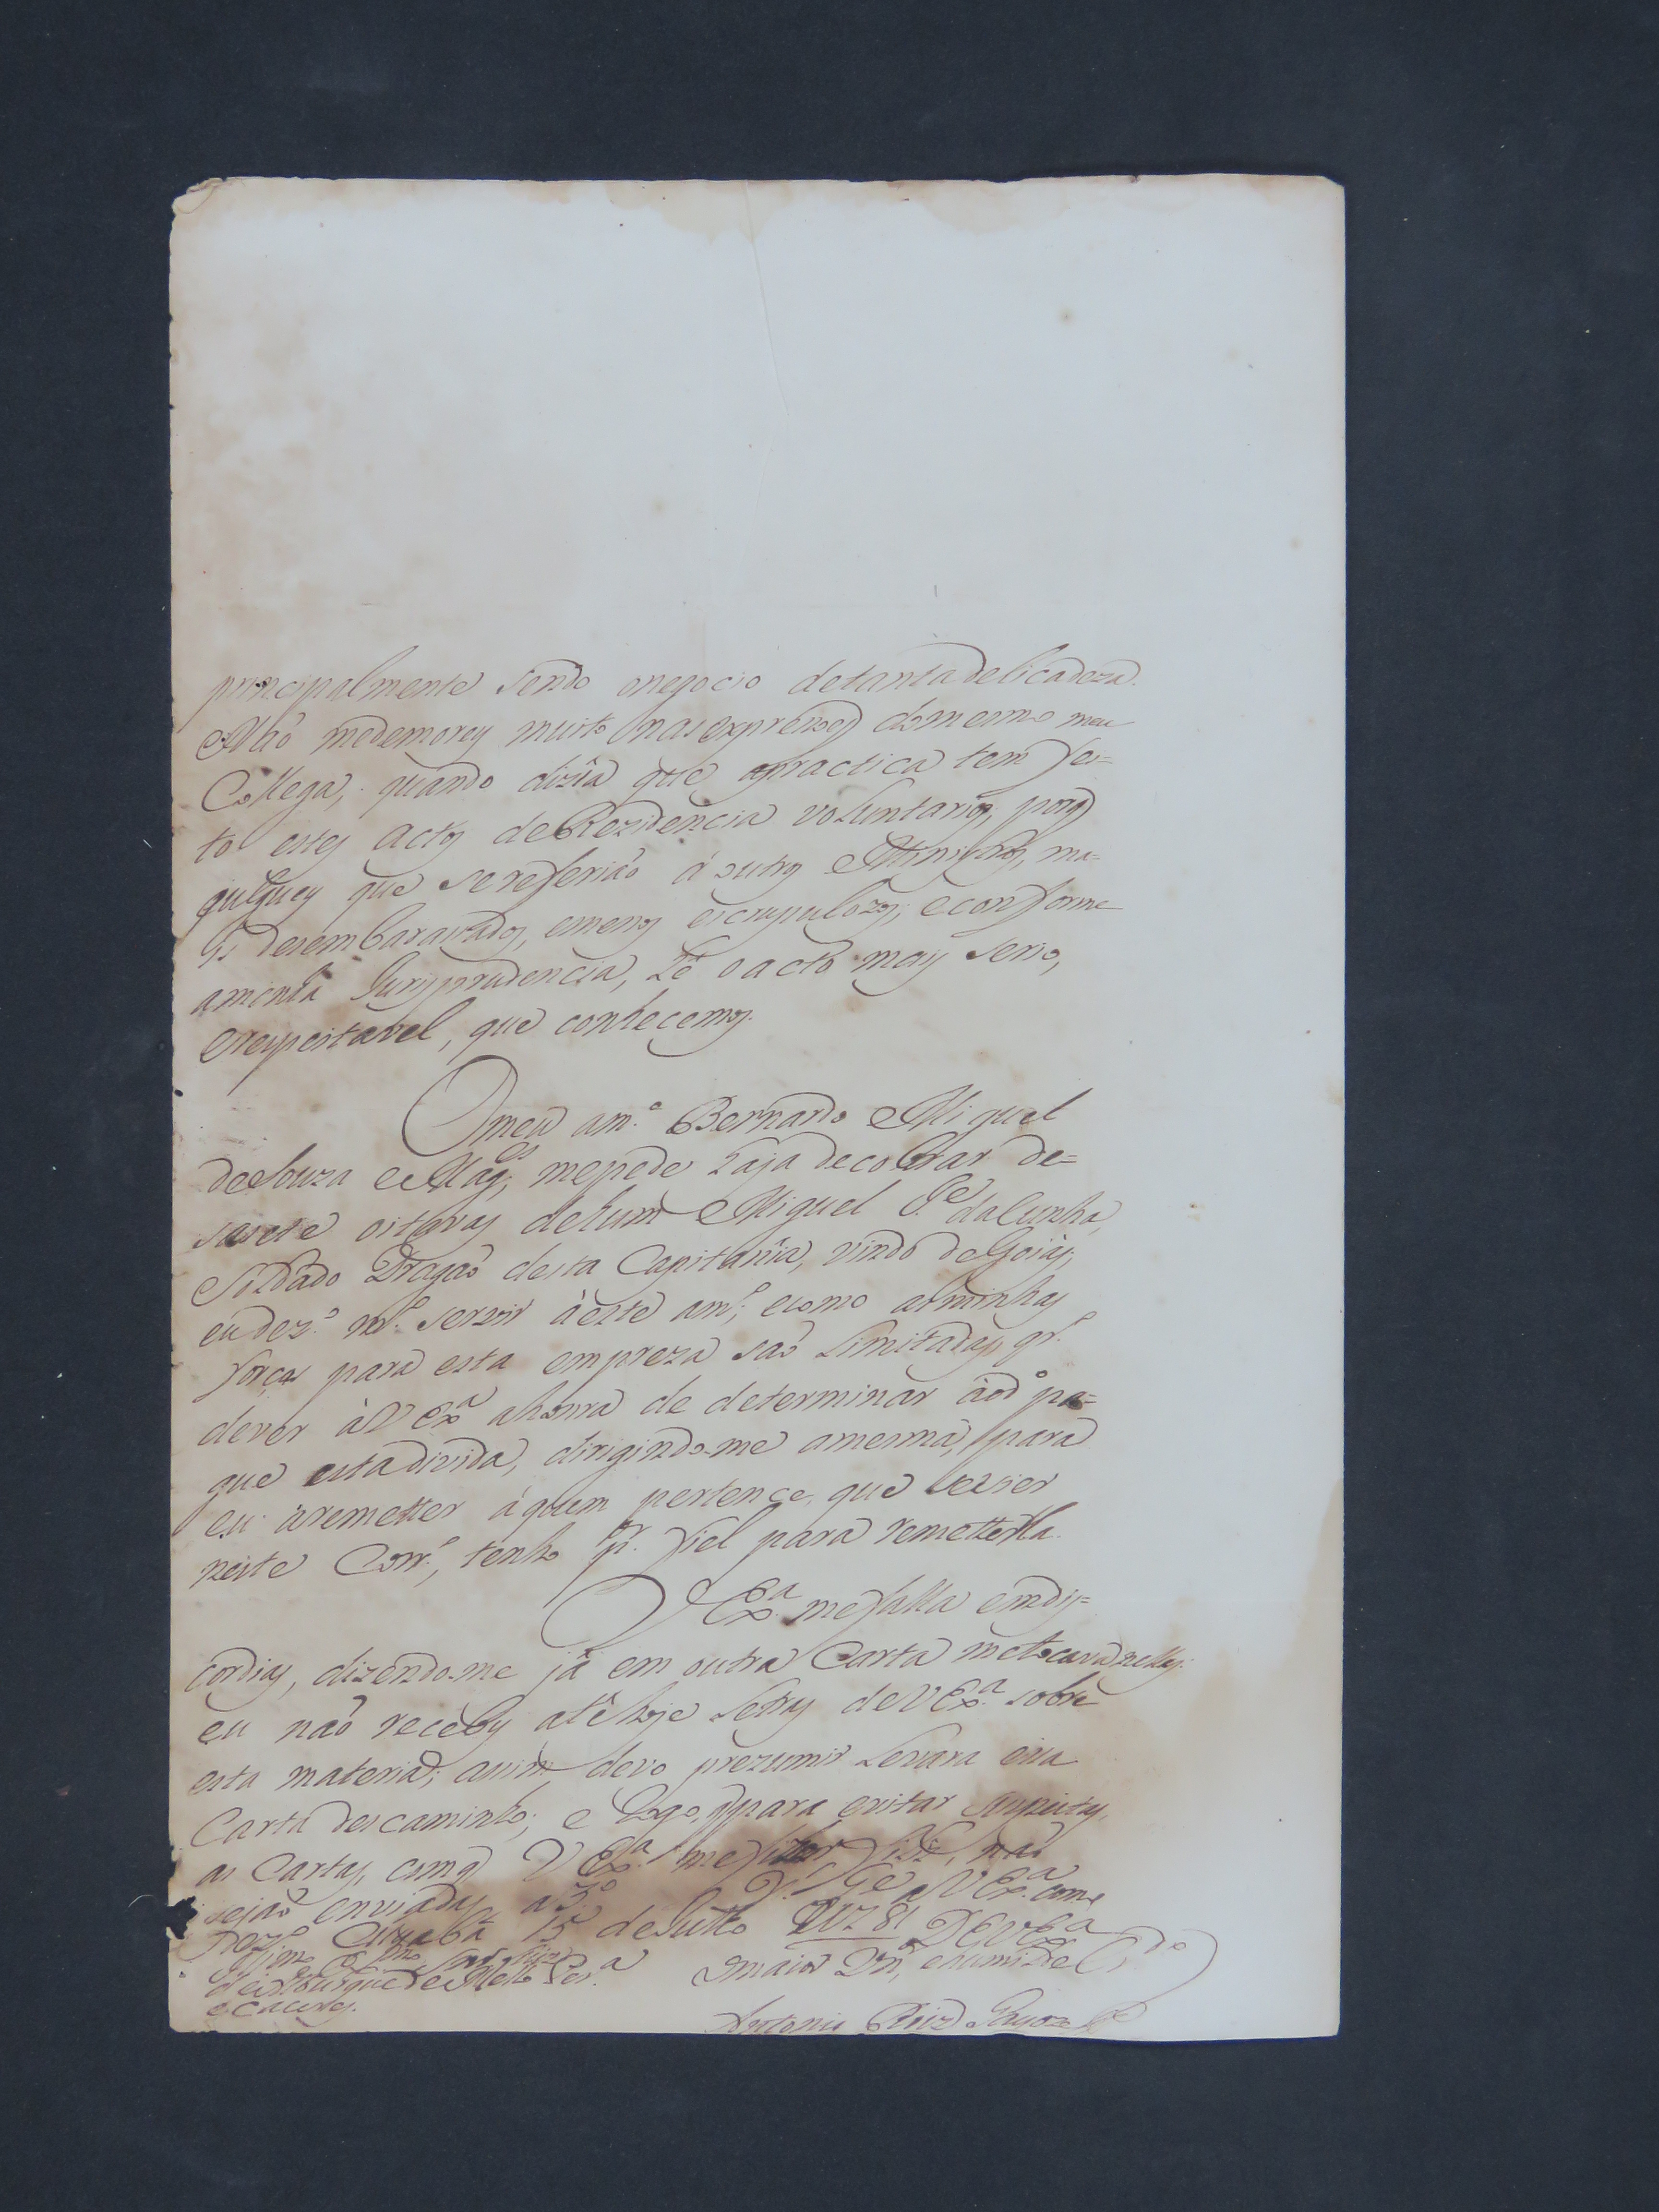 principalmente sendo onegocio detantadelicadeza.
Não medemorey muito nasexpresoẽs domesmo meu
Collega, quando dizîa que apractica tem fei=
to estes actos deRezidencia voluntarios, porq̃
julguey que sereferiaõ á outros Ministros, ma=
is desembarasados, emenos escrupulozos; econforme
aminha Jurisprudencia, hé oacto mais serio,
erespeitavel, que conhecemos.
Omeu am.º Bernardo Miguel
deSouza e Mag.es, mepede haja decobrar de=
sasete oitavas dehum Miguel J.e daCunha,
Soldado Dragaõ desta Capitanîa, vindo deGoiás;
eu dez.º m.º servir áeste am.º; ecomo asminhas
forças para esta empreza saõ Limitadas, qr.º
dever áVEx.a ahonra de determinar áod.º pa=
gue estadivida, dirigindo-me amesma, para
eu aremetter áquem pertence, que
neste Corr.º, tenho pr. fiel para remetterlla.
VEx.a mefalla emdis=
cordias, dizendo-me já em outra Carta metocava nellas:
eu naõ receby atéhoje Letras deVEx.a sobre
esta materia; asim devo prezumir Levara essa
Carta descaminho; e Logo, para evitar suspeitas,
as Cartas, comq̃ VEx.a me naõ
sejaõ enviadas a3.º D.s G.e a VEx.a como
Dez.º Cuyabá 15 deJulho 1781 DeVEx.a
Ill.mo e Ex.mo Snr Luiz
deAlbuquerque deMello Per.a Omaior Vn.or, ehumilde C.do
eCaceres.
Antonio Roiz Gayozo